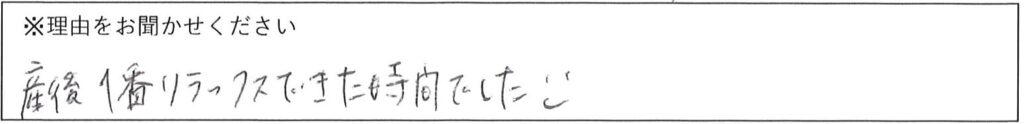 ※理由をお聞かせください
産後1番リラックスできた時間でした